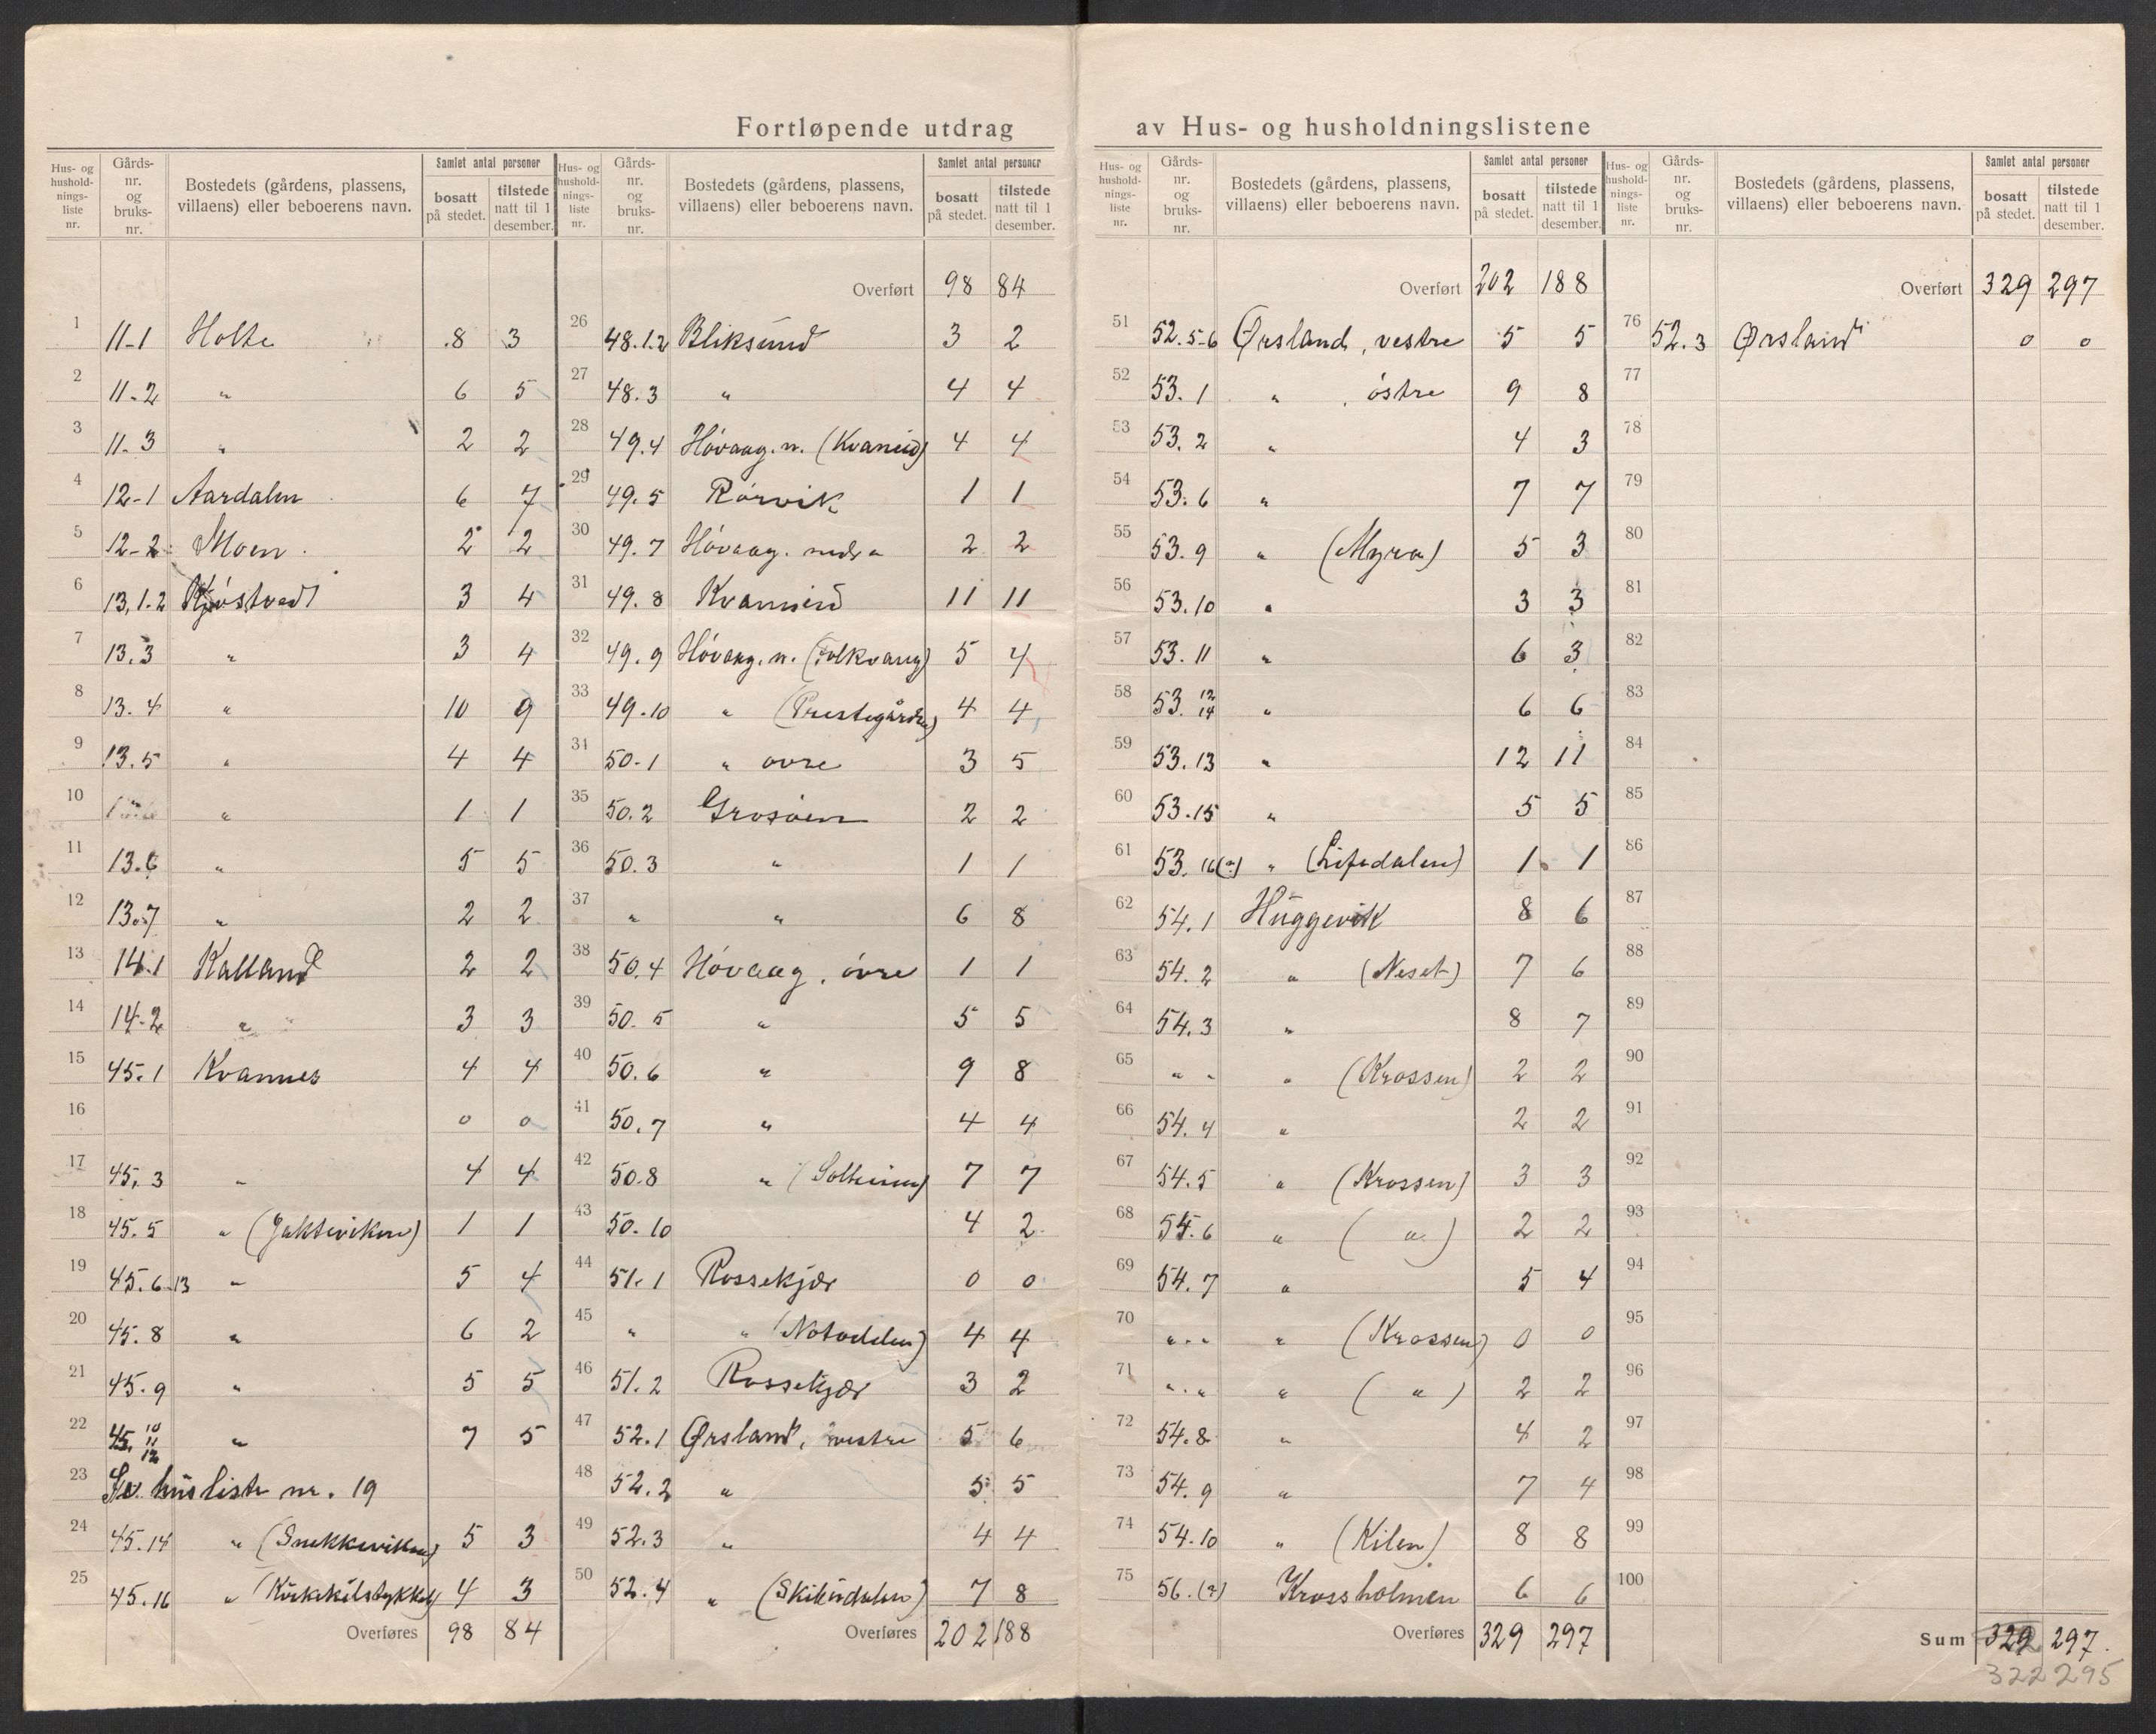 Fortløpende utdrag av Hus- og husholdningslistene
Hus- og husholdningsliste nr. | Gårdsnr. og bruksnr. | Bostedets (gårdens, plassens, villaens) eller beboerens navn. | Samlet antal personer | bosatt på stedet. | tilstede natt til 1 desember.
1 11-1 Holte 8 3
2 11-2 " 6 5
3 11-3 " 2 2
4 12-1 Aardalen 6 7
5 12-2 Moen 2 2
6 13,1.2 Kjøstvedt 3 4
7 13.3 " 3 4
8 13.4 " 10 9
9 13.5 " 4 4
10 " 1 1
11 13.6 " 5 5
12 13.7 " 2 2
13 14.1 Kalland 2 2
14 14-2 " 3 3
15 45.1 Kvannes 4 4
16 0 0
17 45.3 " 4 4
18 45.5 " (Jakteviken) 1 1
19 45.6-13 " 5 4
20 45.8 " 6 2
21 45.9 " 5 5
22 45. 10 11 12 " 7 5
23 Se husliste nr. 19
24 45.14 " (Snekkeviken) 5 3
25 45.16 " (Kirkekilstykket) 4 3
Overføres 98 84
Hus- og husholdningsliste nr. | Gårdsnr. og bruksnr. | Bostedets (gårdens, plassens, villaens) eller beboerens navn. | Samlet antal personer | bosatt på stedet. | tilstede natt til 1 desember.
Overført 98 84
26 48.1.2 Bliksund 3 2
27 48.3 " 4 4
28 49.4 Hóvaag. n. (Kvaneid) 4 4
29 49.5 Rórvik 1 1
30 49.7 Hóvaag. nedre 2 2
31 49.8 Kvanneid 11 11
32 49.9 Hóvaag. n. (Folkvang) 5 4
33 49.10 " (Prestegården) 4 4
34 50-1 " ovre 3 5
35 50.2 Grosóen 2 2
36 50.3 " 1 1
37 " " 6 8
38 50.4 Hóvaag, óvre 1 1
39 50.5 " 5 5
40 50.6 " 9 8
41 50.7 " 4 4
42 50.8 " (Solheim) 7 7
43 50.10 4 2
44 51.1 Rossekjær 0 0
45 " " (Notodden) 4 4
46 51.2 Rossekjær 3 2
47 52.1 Ørsland, vestre 5 6
48 52.2 " 5 5
49 52.3 " 4 4
50 52.4 " (Skibvdalen) 7 8
Overføres 202 188
Hus- og husholdningsliste nr. | Gårdsnr. og bruksnr. | Bostedets (gårdens, plassens, villaens) eller beboerens navn. | Samlet antal personer | bosatt på stedet. | tilstede natt til 1 desember.
Overført 202 188
51 52.5-6 Ørsland, vestre 5 5
52 53.1 " , óstre 9 8
53 53.2 " 4 3
54 53.6 " 7 7
55 53.9 " (Myra) 5 3
56 53.10 " 3 3
57 53.11 " 6 3
58 53. 12 14 " 6 6
59 53.13 " 12 11
60 53.15 " 5 5
61 53.16(a) " (Lifsdalen) 1 1
62 54.1 Huggevik 8 6
63 54.2 " (Neset) 7 6
64 54.3 " 8 7
65 " " " (Krossen) 2 2
66 54.4 " 2 2
67 54.5 " (Krossen) 3 3
68 54.6 " ( " ) 2 2
69 54.7 " 5 4
70 " " " (Krossen) 0 0
71 " " " ( " ) 2 2
72 54.8 " 4 2
73 54.9 " 7 4
74 54.10 " (Kilen) 8 8
75 56.(a) Krossholmen 6 6
Overføres 329 297
Hus- og husholdningsliste nr. | Gårdsnr. og bruksnr. | Bostedets (gårdens, plassens, villaens) eller beboerens navn. | Samlet antal personer | bosatt på stedet. | tilstede natt til 1 desember.
Overført 329 297
76 52.3 Ørsland 0 0
77
78
79
80
81
82
83
84
85
86
87
88
89
90
91
92
93
94
95
96
97
98
99
100
Sum 329 297.
322 295